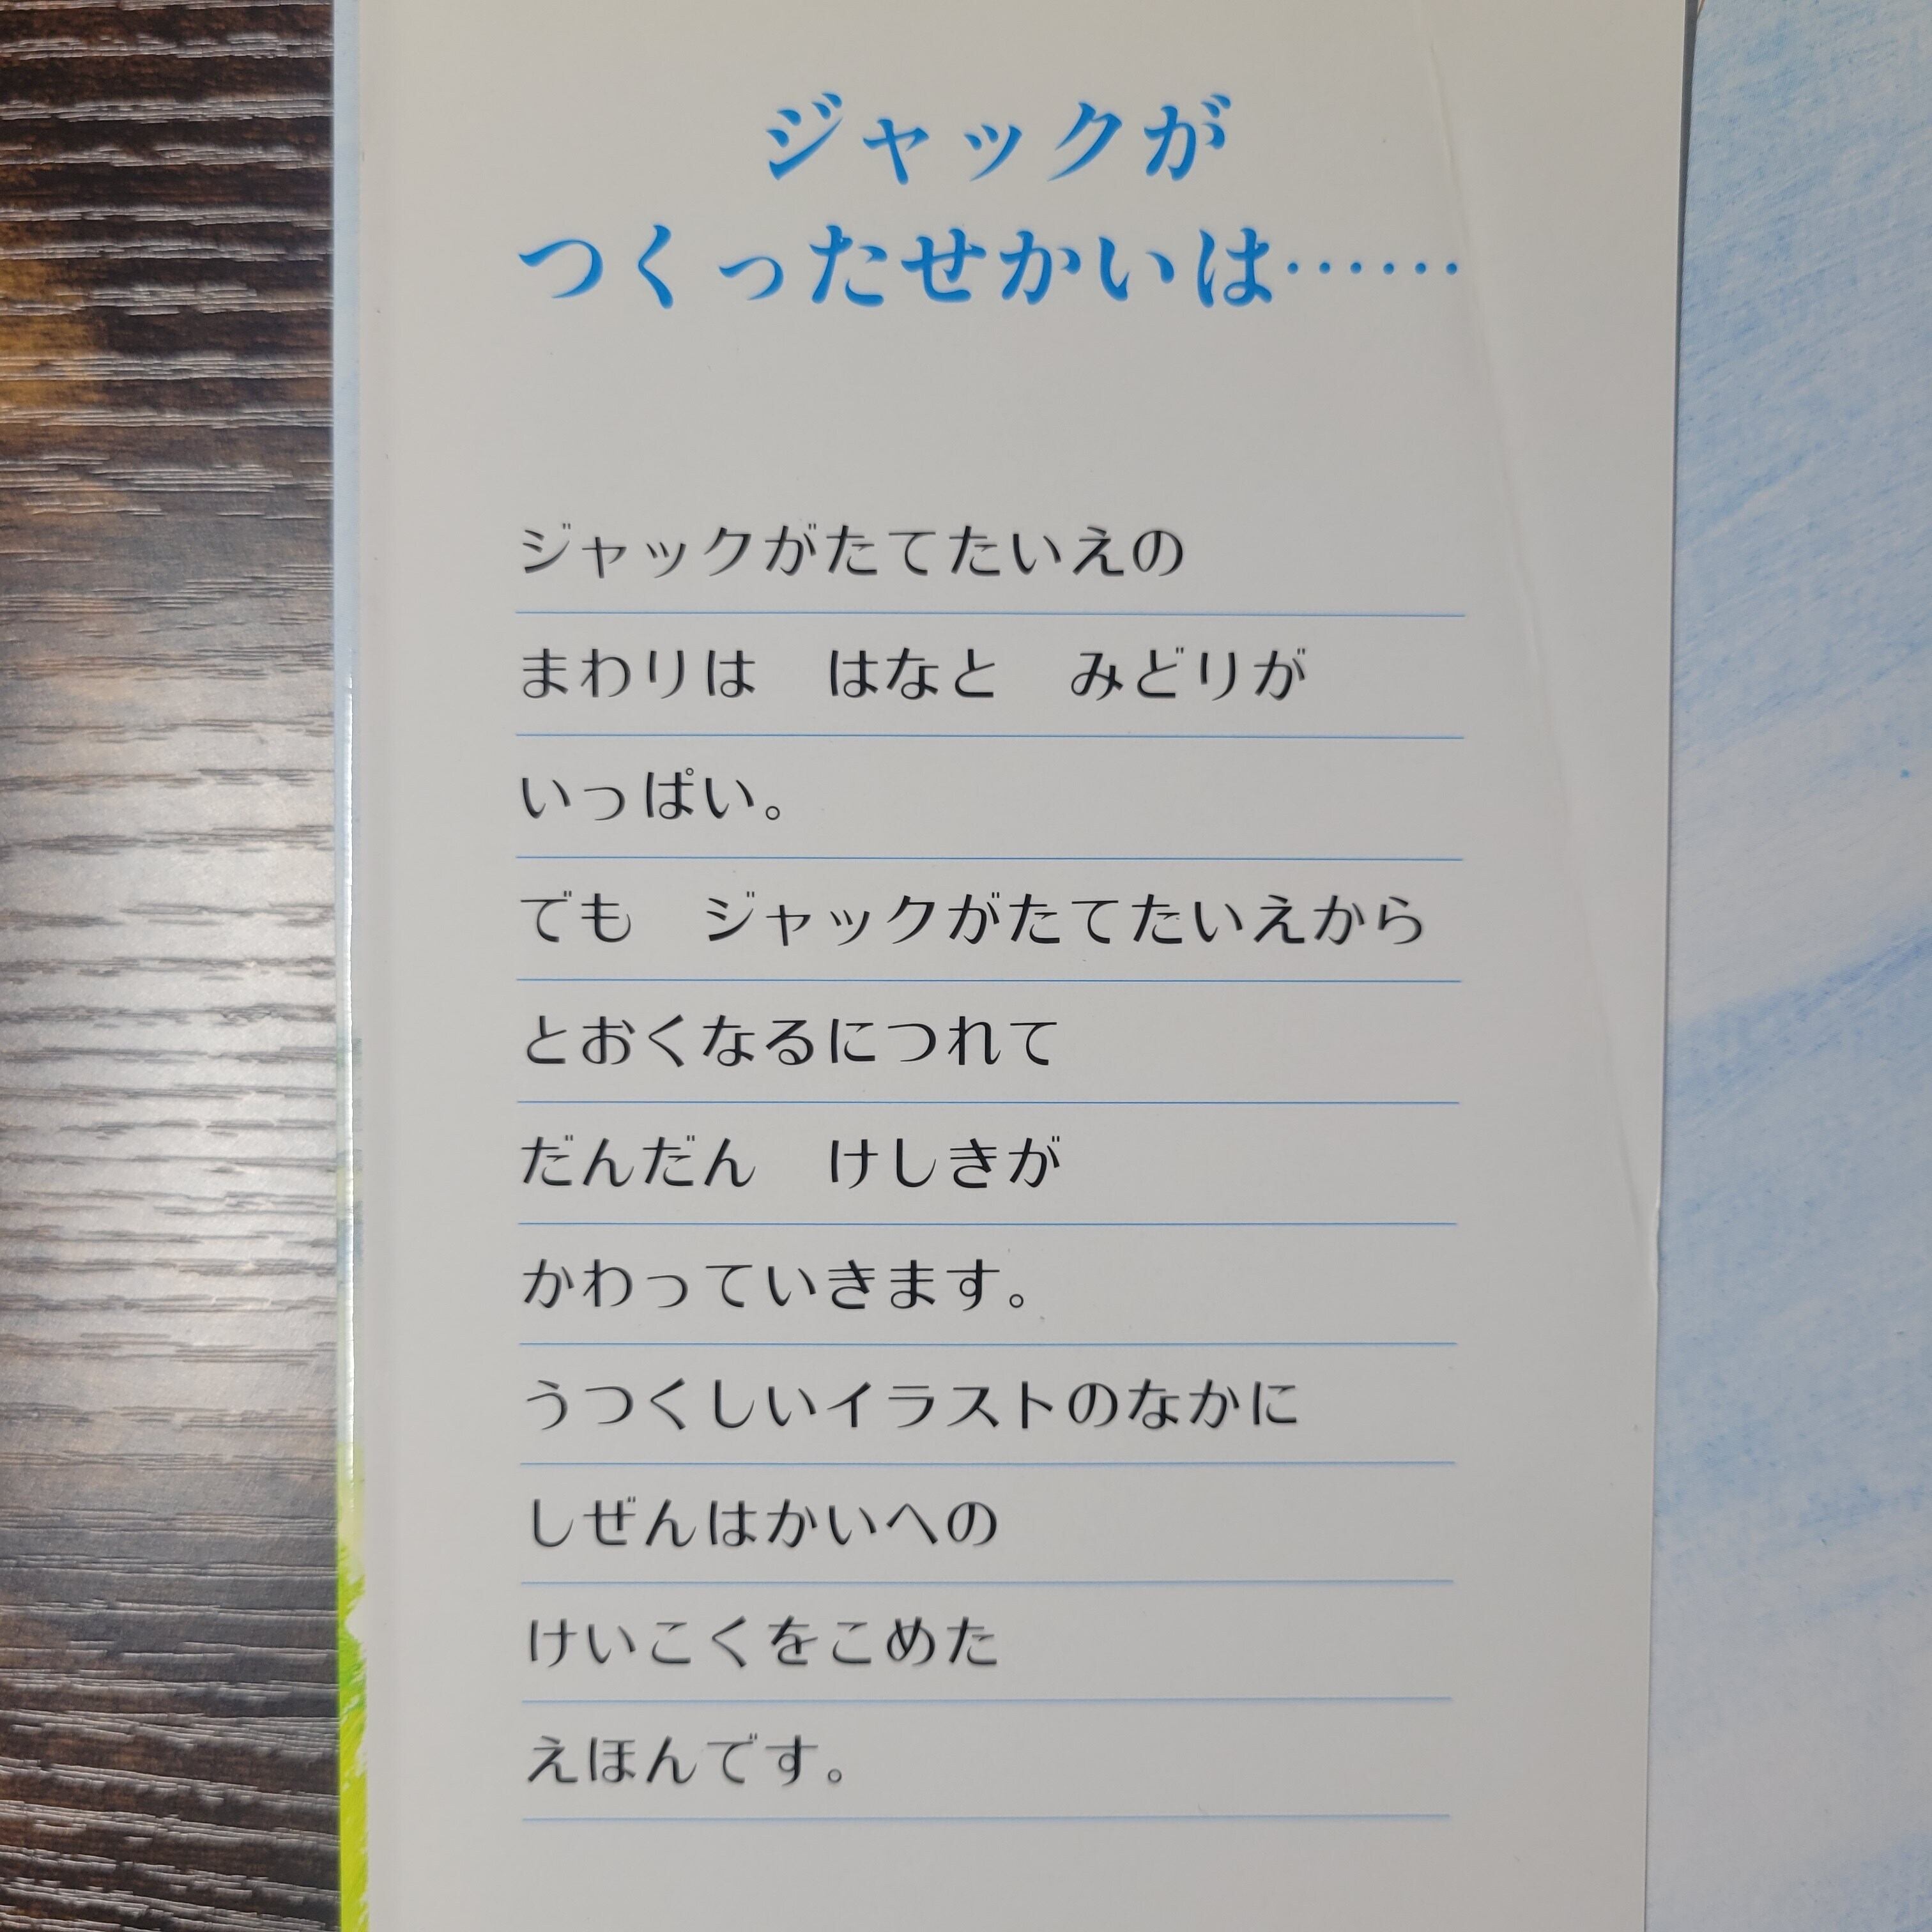 ジャックが
つくったせかいは……
ジャックがたてたいえの
まわりは　はなと　みどりが
いっぱい。
でも　ジャックがたてたいえから
とおくなるにつれて
だんだん　けしきが
かわっていきます。
うつくしいイラストのなかに
しぜんはかいへの
けいこくをこめた
えほんです。